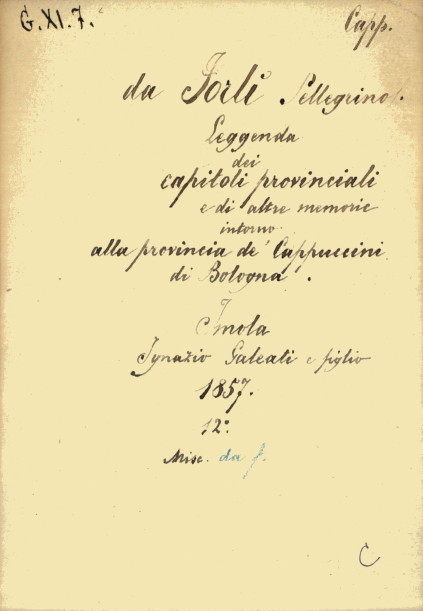 G. XI. 7.
Capp.
da Forlì Pellegrino.
Leggenda
dei
capitoli provinciali
e di altre memorie
intorno
alla provincia de' Cappuccini
di Bologna.
Imola
Ignazio Galeati e figlio
1857.
12°.
Misc. da f.
C